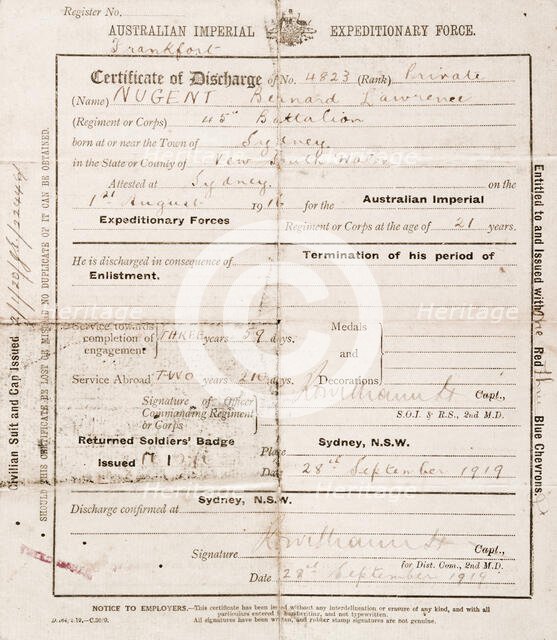 Register No.
AUSTRALIAN IMPERIAL EXPEDITIONARY FORCE.
Frankfort
Certificate of Discharge of No. 4823 (Rank) Private
(Name) NUGENT Bernard Lawrence
(Regiment or Corps) 45th Battalion
born at or near the Town of Sydney
in the State or County of New South Wales
Attested at Sydney on the
1st August 1916 for the Australian Imperial
Expeditionary Forces Regiment or Corps at the age of 21 years.
He is discharged in consequence of Termination of his period of
Enlistment.
Service towards completion of engagement THREE years 59 days.
Medals and Decorations
Service Abroad TWO years 210 days.
Signature of Officer Commanding Regiment or Corps
Capt.,
S.O.I. & R.S., 2nd M.D.
Returned Soldiers' Badge
Issued
Place Sydney, N.S.W.
Date 28th September 1919
Discharge confirmed at Sydney, N.S.W.
Signature Capt.,
for Dist. Com., 2nd M.D.
Date 28th September 1919
NOTICE TO EMPLOYERS.—This certificate has been issued without any interdelineation or erasure of any kind, and with all
particulars entered in handwriting, and not typewritten.
All signatures have been written, and rubber stamp signatures are not genuine.
Civilian Suit and Cap Issued
SHOULD THIS CERTIFICATE BE LOST OR MISLAID NO DUPLICATE OF IT CAN BE OBTAINED.
Entitled to and Issued with One Red three Blue Chevrons.
Heritage
Heritage
Heritage
Heritage
Heritage
Heritage
C